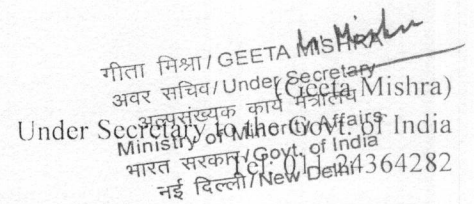 गीता मिश्रा / GEETA MISHRA
अवर सचिव / Under Secretary
अल्पसंख्यक कार्य मंत्रालय
Ministry of Minority Affairs
भारत सरकार / Govt. of India
नई दिल्ली / New Delhi
(Geeta Mishra)
Under Secretary to the Govt. of India
Tel: 011-24364282